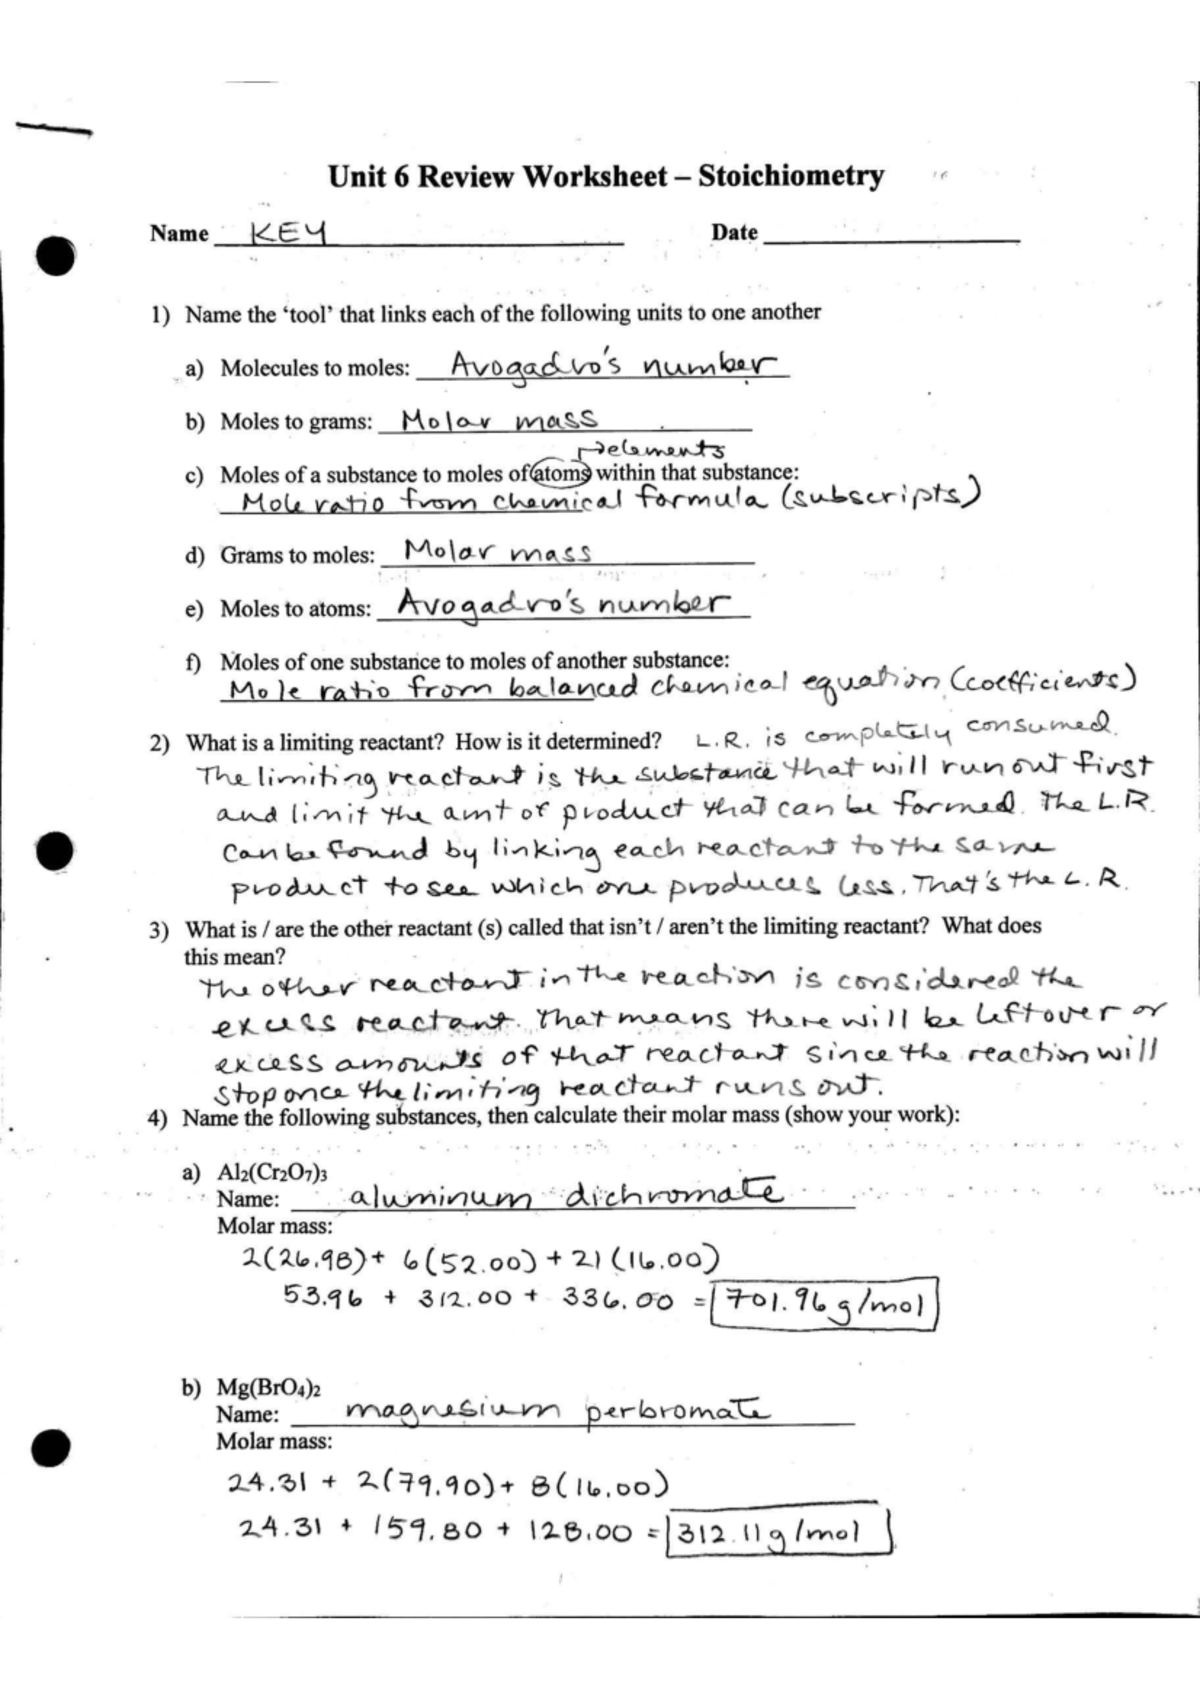 Unit 6 Review Worksheet – Stoichiometry
Name KEY Date
1) Name the ‘tool’ that links each of the following units to one another
a) Molecules to moles: Avogadro's number
b) Moles to grams: Molar mass
→elements
c) Moles of a substance to moles of atoms within that substance:
Mole ratio from chemical formula (subscripts)
d) Grams to moles: Molar mass
e) Moles to atoms: Avogadro's number
f) Moles of one substance to moles of another substance:
Mole ratio from balanced chemical equation (coefficients)
2) What is a limiting reactant? How is it determined? L.R. is completely consumed.
The limiting reactant is the substance that will run out first
and limit the amt of product that can be formed. The L.R.
can be found by linking each reactant to the same
product to see which one produces less. That's the L.R.
3) What is / are the other reactant (s) called that isn’t / aren’t the limiting reactant? What does
this mean?
The other reactant in the reaction is considered the
excess reactant. That means there will be leftover or
excess amounts of that reactant since the reaction will
stop once the limiting reactant runs out.
4) Name the following substances, then calculate their molar mass (show your work):
a) Al2(Cr2O7)3
Name: aluminum dichromate
Molar mass:
2(26.98) + 6(52.00) + 21(16.00)
53.96 + 312.00 + 336.00 = 701.96 g/mol
b) Mg(BrO4)2
Name: magnesium perbromate
Molar mass:
24.31 + 2(79.90) + 8(16.00)
24.31 + 159.80 + 128.00 = 312.11 g/mol